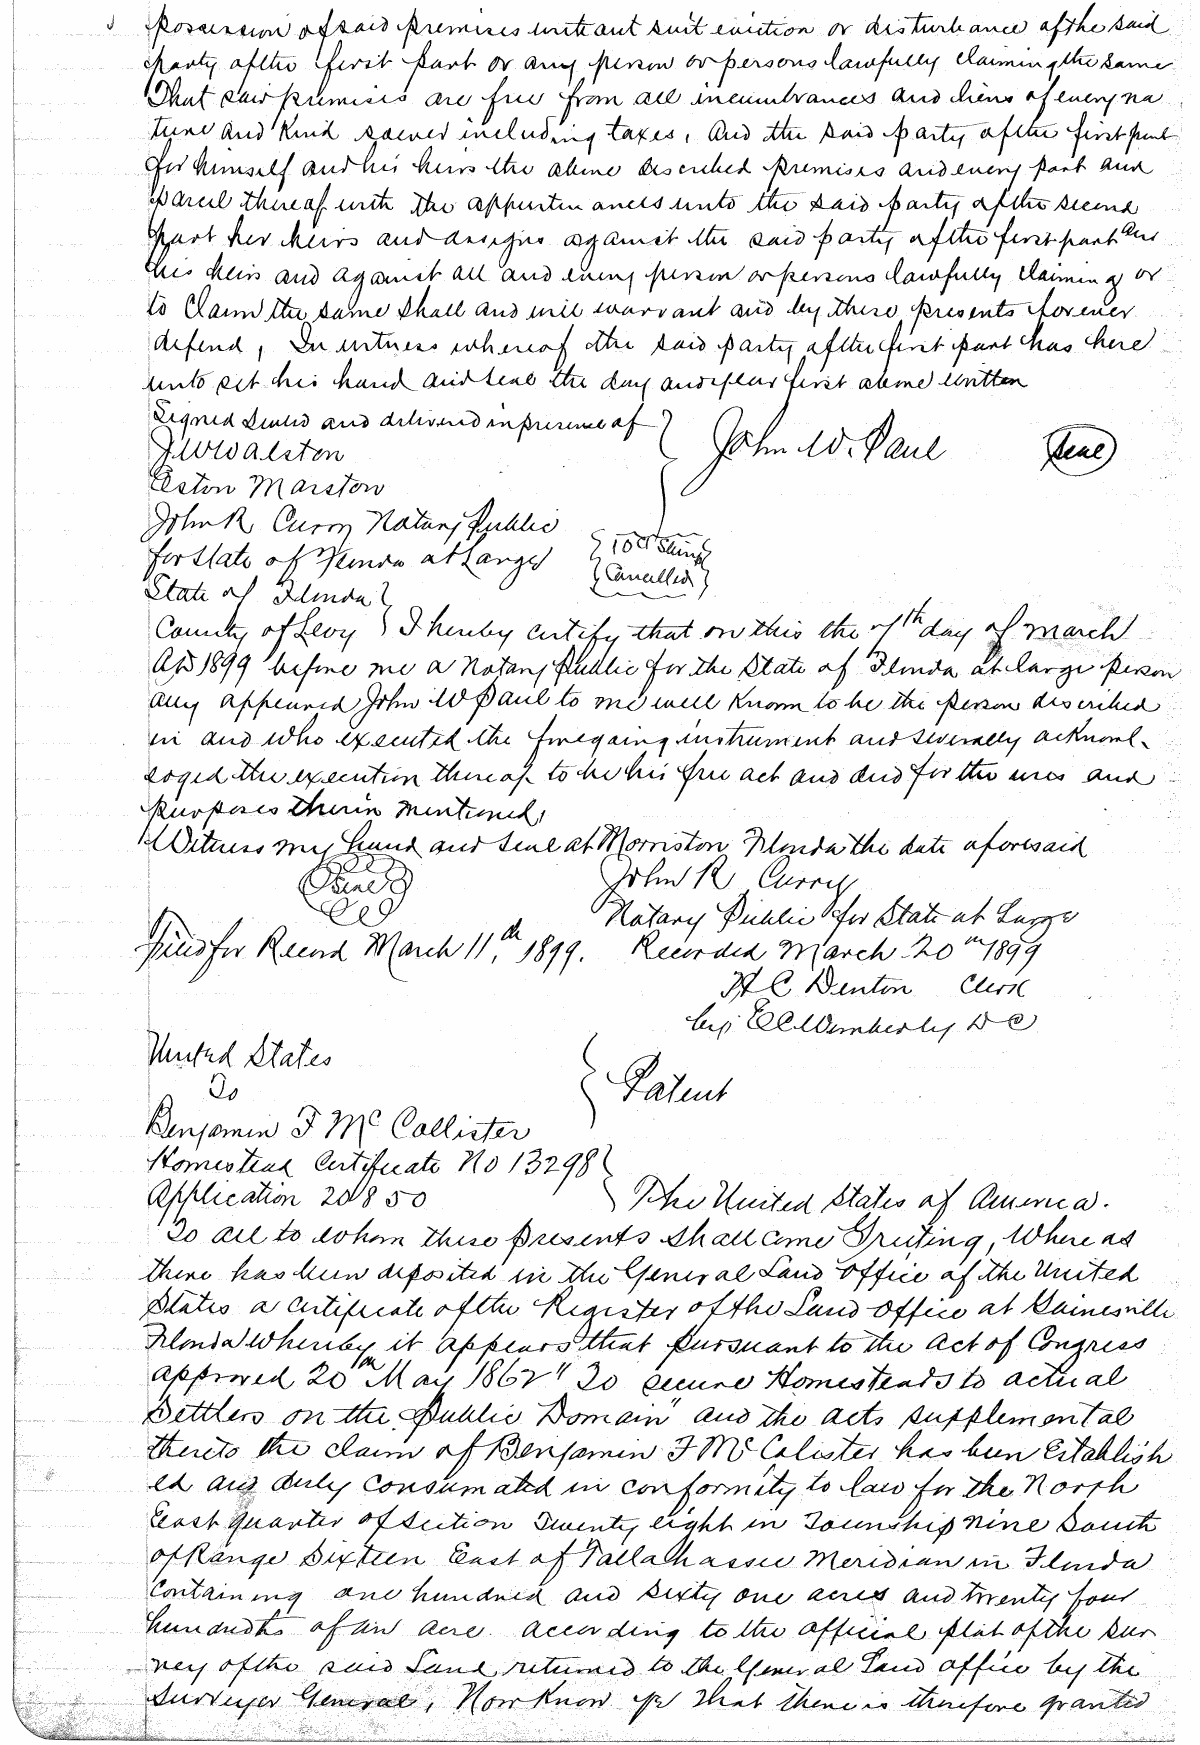 Possession of said premises without suit eviction or disturbance of the said
Party of the first part or any person or persons lawfully claiming the same
That said premises are free from all incumbrances and liens of every na
ture and kind soever including taxes, And the said party of the first part
for himself and his heirs the above described premises and every part and
parcel thereof with the appurtenances unto the said party of the second
part her heirs and assigns against the said party of the first part and
his heirs and against all and every person or persons lawfully claiming or
to claim the same shall and will warrant and by these presents forever
defend, In witness whereof the said party of the first part has here
unto set his hand and seal the day and year first above written
Signed Sealed and delivered in presence of
J.W Walston John W. Paul Seal
Eston Marston
John R Curry Notary Public
for State of Florida at Large
Cancelled
State of Florida
County of Levy } I hereby certify that on this the 7th day of March
AD 1899 before me a Notary Public for the State of Florida at large person
ally appeared John W Paul to me well known to be the person described
in and who executed the foregoing instrument and severally acknowl-
edged the execution thereof to be his free act and deed for the uses and
purposes therein mentioned,
Witness my hand and seal at Morriston Florida the date aforesaid
Seal John R Curry
Notary Public for State at Large
Filed for Record March 11th, 1899. Recorded March 20th 1899
H C Denton Clerk
by E C Wimberly D C
United States
To } Patent
Benjamin F Mc Collister
Homestead Certificate No 13298
Application 20850 } The United States of America.
To all to whom these presents shall come Greeting, Where as
there has been deposited in the General Land Office of the United
States a certificate of the Register of the Land Office at Gainesville
Florida Whereby it appears that pursuant to the act of Congress
approved 20th May 1862 "To secure Homesteads to actual
Settlers on the Public Domain" and the acts supplemental
thereto the claim of Benjamin F Mc Calister has been Establish
ed and duly consumated in conformity to law for the North
East quarter of Section Twenty eight in Township nine South
of Range Sixteen East of Tallahassee Meridian in Florida
Containing one hundred and sixty one acres and twenty four
hundredths of an acre according to the official plat of the sur
vey of the said Land returned to the General Land office by the
Surveyor General, Now Know ye That there is therefore granted